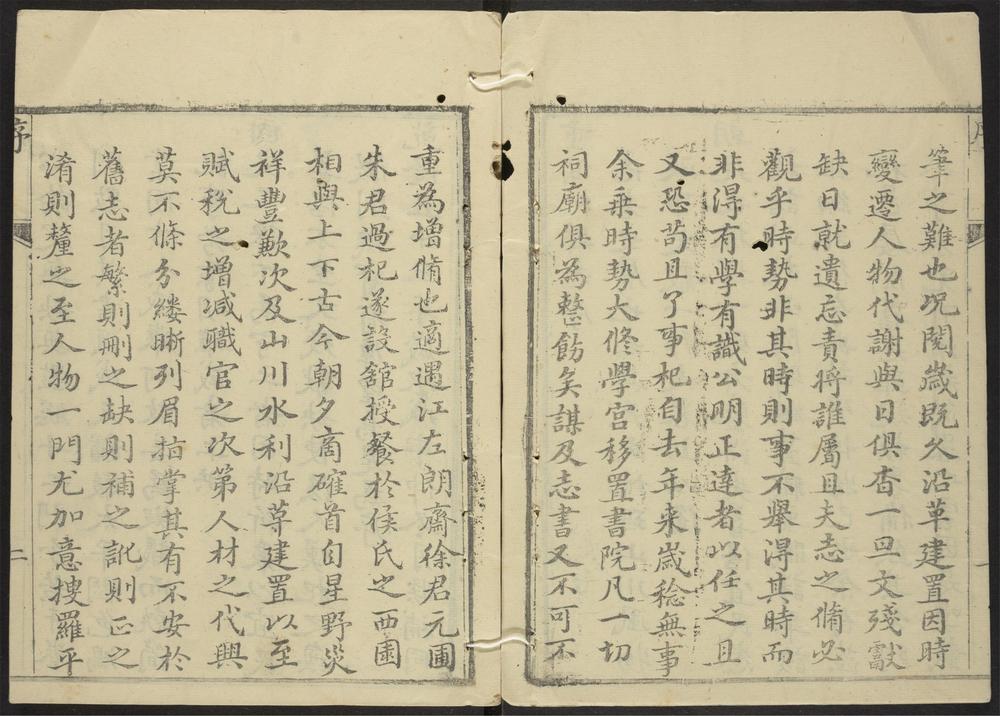 筆之難也况閱歲既久沿革建置因時
變遷人物代謝與日俱杳一旦文殘獻
缺日就遺忘責將誰屬且夫志之脩必
觀乎時勢非其時則事不舉得其時而
非得有學有識公明正達者以任之且
又恐苟且了事杞自去年来歲稔無事
余乗時勢大修學宫移置書院凡一切
祠廟俱為整飭矣謀及志書又不可不
重為增脩也適遇江左朗齋徐君元圃
朱君過杞遂設舘授餐於侯氏之西園
相與上下古今朝夕商確首自星野災
祥豐歉次及山川水利沿革建置以至
賦稅之增减職官之次第人材之代興
莫不條分縷晰列眉指掌其有不安於
舊志者繁則刪之缺則補之訛則正之
淆則釐之至人物一門尤加意搜羅平
序
二